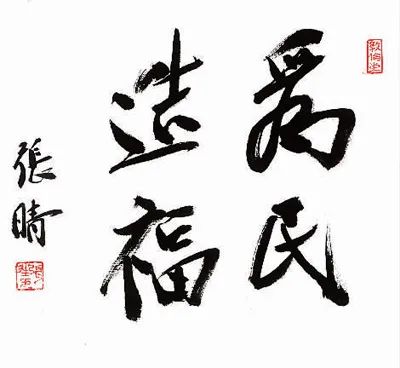 為民
造福
張晴